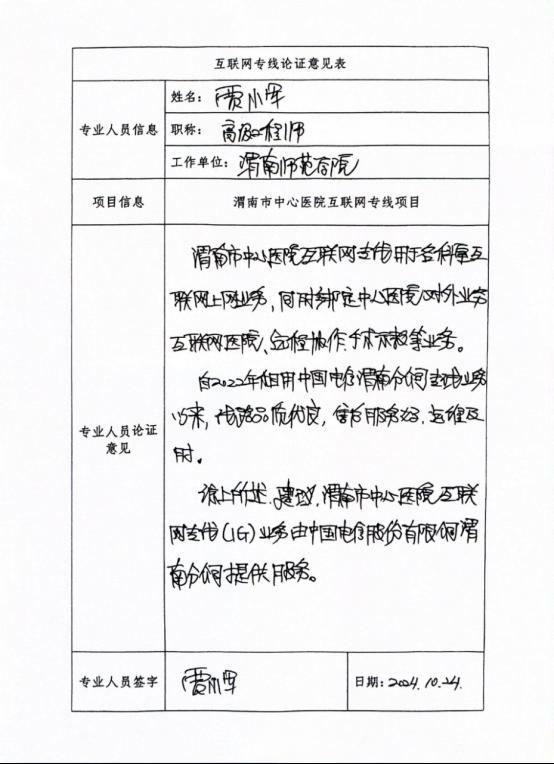 互联网专线论证意见表
专业人员信息
姓名：贾小军
职称：高级工程师
工作单位：渭南师范学院
项目信息
渭南市中心医院互联网专线项目
专业人员论证
意见
渭南市中心医院互联网专线用于各科室互
联网上网业务，同时绑定中心医院对外业务
互联网医院、远程协作、手术示教等业务。
自2022年租用中国电信渭南分公司专线业务
以来，线路品质优良，售后服务好，运维及
时。
综上所述，建议，渭南市中心医院互联
网专线（1G）业务由中国电信股份有限公司渭
南分公司提供服务。
专业人员签字
贾小军
日期：2024.10.24.